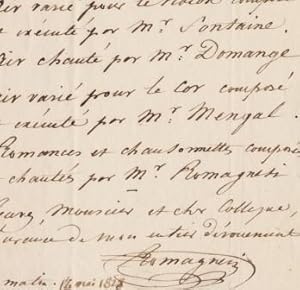 Air varié pour le violon composé
et exécuté par Mr. Fontaine.
Air chanté par Mr. Domange
Air varié pour le Cor composé
et exécuté par Mr. Mengal.
Romances et chansonnettes composées
et chantés par Mr. Romagnesi
Monsieur et cher Collegue,
de mon entier dévouement
Romagnesi
matin. 16 mai 1828